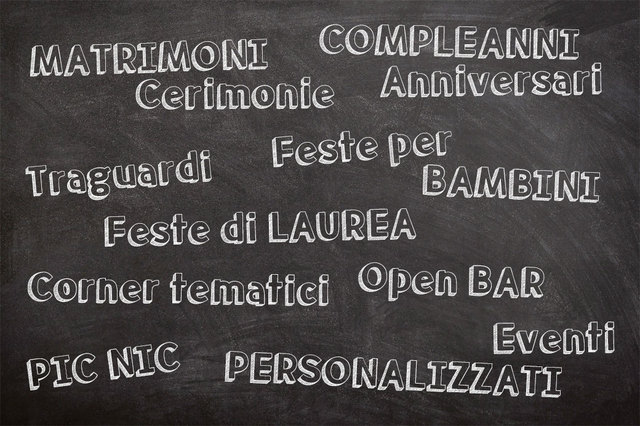 MATRIMONI
COMPLEANNI
Cerimonie
Anniversari
Feste per
BAMBINI
Traguardi
Feste di LAUREA
Corner tematici
Open BAR
Eventi
PERSONALIZZATI
PIC NIC